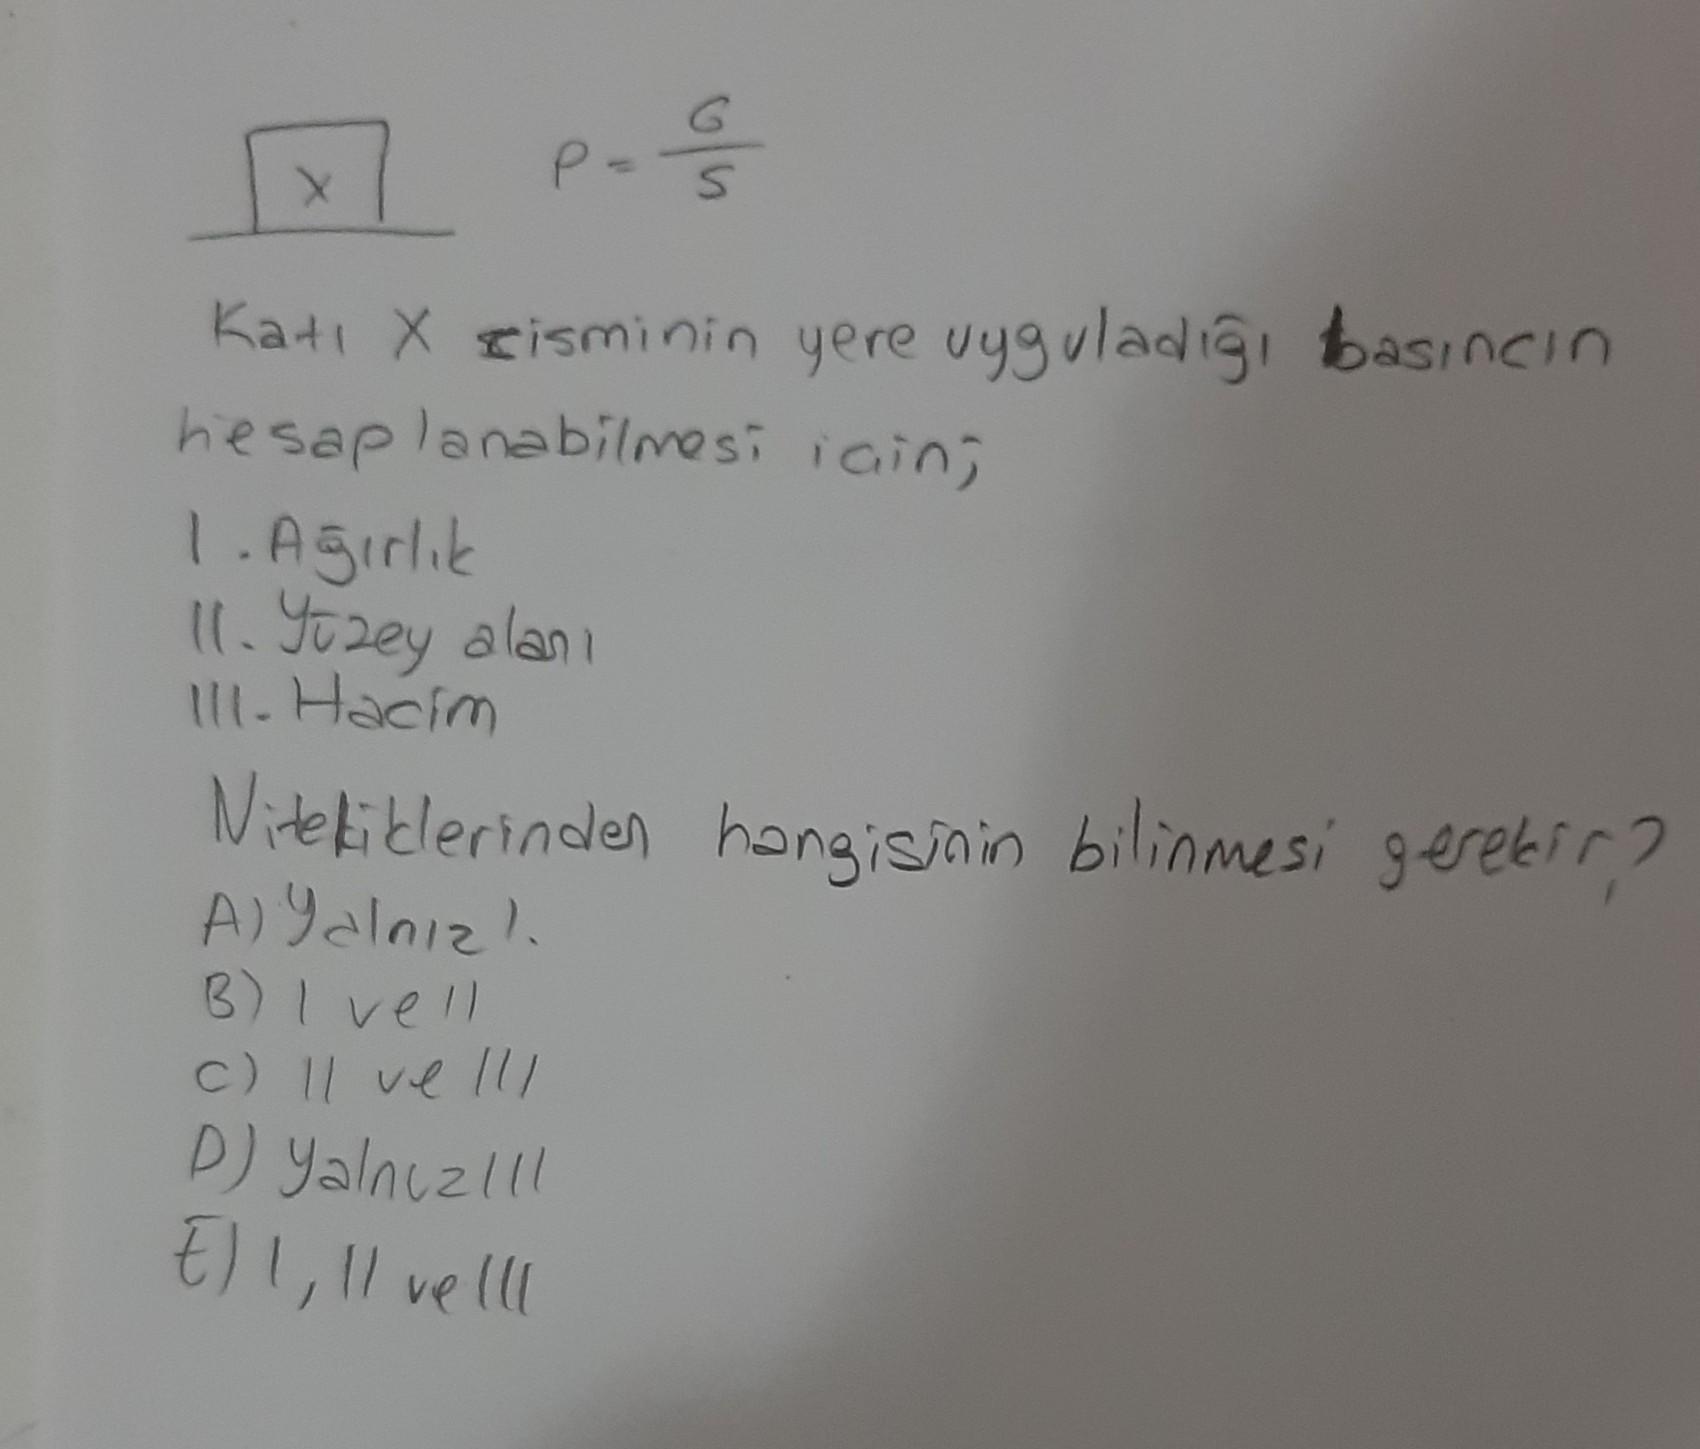 X
P = G/S
Katı X cisminin yere uyguladığı basıncın
hesaplanabilmesi için;
I. Ağırlık
II. Yüzey alanı
III. Hacim
Niteliklerinden hangisinin bilinmesi gerekir?
A) Yalnız I.
B) I ve II
C) II ve III
D) Yalnız III
E) I, II ve III